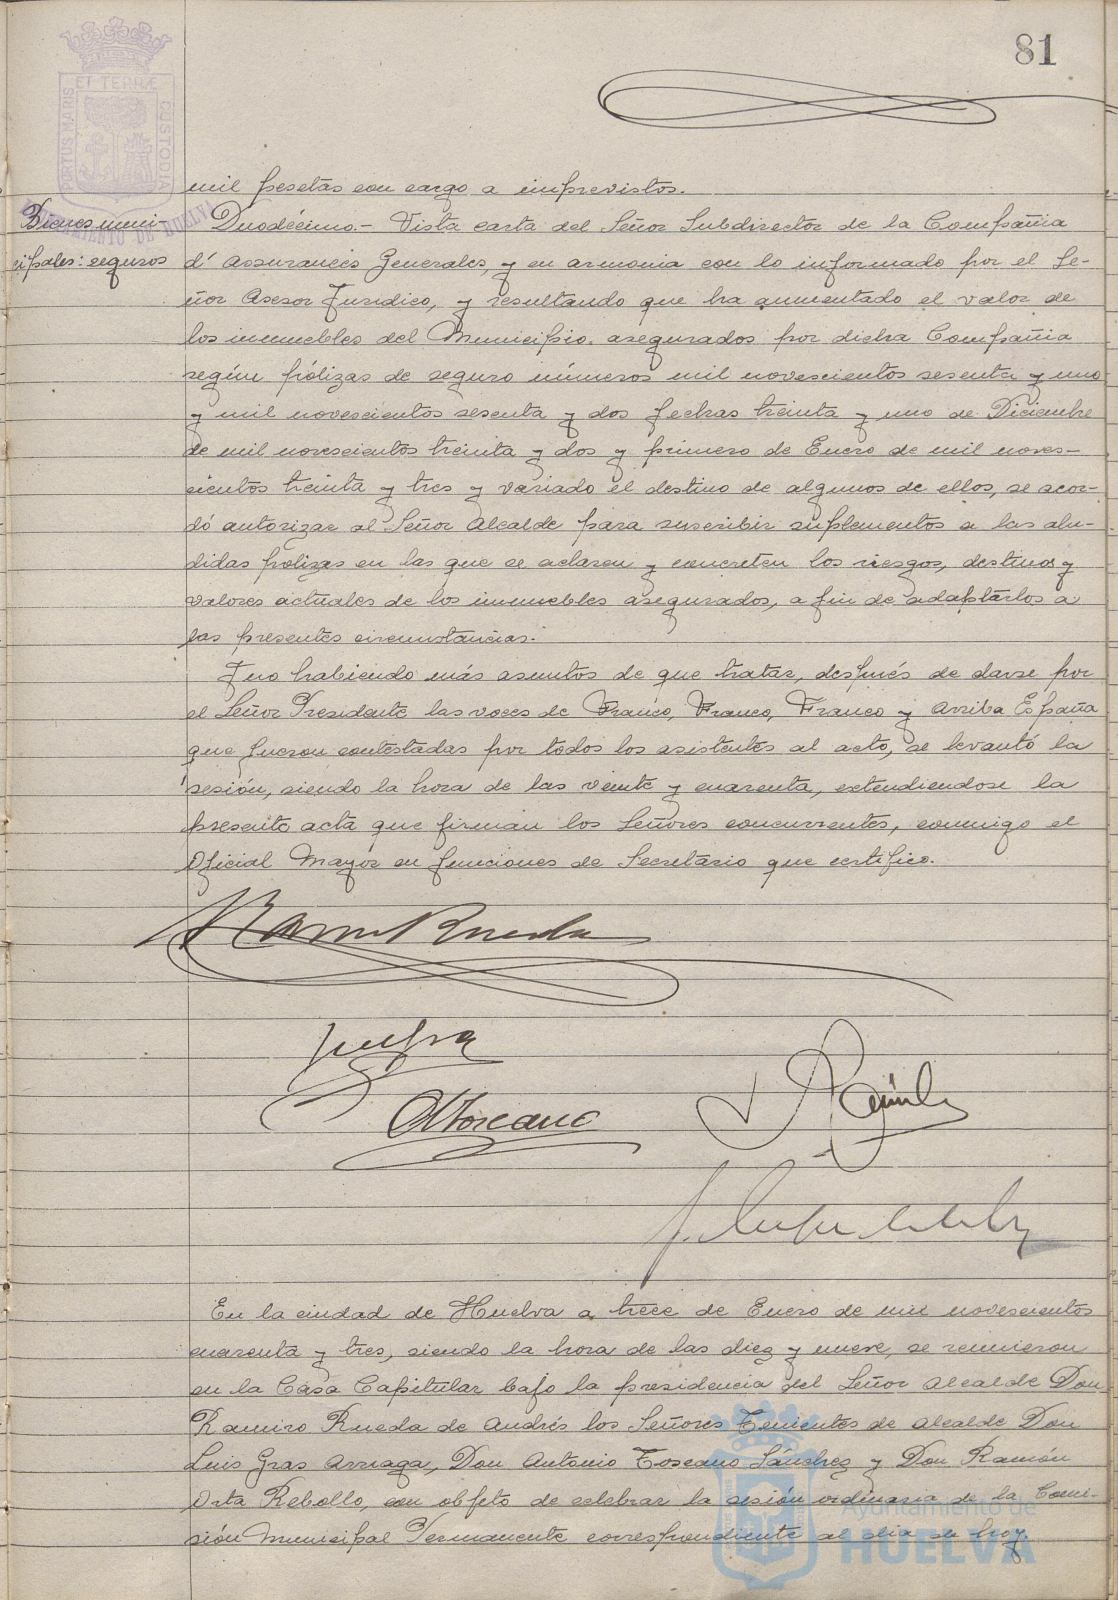 81
PORTUS MARIS ET TERRÆ CUSTODIA
AYUNTAMIENTO DE HUELVA
mil pesetas con cargo a imprevistos.
Bienes muni-
cipales: seguros
Duodécimo.- Vista carta del Señor Subdirector de la Compañia
d' Assurances Generales, y en armonia con lo informado por el Se-
ñor Asesor Juridico, y resultando que ha aumentado el valor de
los inmuebles del Municipio, asegurados por dicha Compañia
según pólizas de seguro números mil novescientos sesenta y uno
y mil novescientos sesenta y dos fechas treinta y uno de Diciembre
de mil novescientos treinta y dos y primero de Enero de mil noves-
cientos treinta y tres y variado el destino de algunos de ellos, se acor-
dó autorizar al Señor Alcalde para suscribir suplementos a las alu-
didas polizas en las que se aclaren y concreten los riesgos, destinos y
valores actuales de los inmuebles asegurados, a fin de adaptarlos a
las presentes circunstancias.
Y no habiendo más asuntos de que tratar, después de darse por
el Señor Presidente las voces de Franco, Franco, Franco y Arriba España
que fueron contestadas por todos los asistentes al acto, se levantó la
sesión, siendo la hora de las veinte y cuarenta, extendiendose la
presente acta que firman los Señores concurrentes, conmigo el
Oficial Mayor en funciones de Secretario que certifico.
Ramiro Rueda
A Toscano
En la ciudad de Huelva a trece de Enero de mil novescientos
cuarenta y tres, siendo la hora de las diez y nueve, se reunieron
en la Casa Capitular bajo la presidencia del Señor Alcalde Don
Ramiro Rueda de Andrés los Señores Tenientes de Alcalde Don
Luis Gras Arriaga, Don Antonio Toscano Sánchez y Don Ramón
Orta Rebollo, con objeto de celebrar la sesión ordinaria de la Comi-
sión Municipal Permanente correspondiente al dia de hoy.
Ayuntamiento de
HUELVA